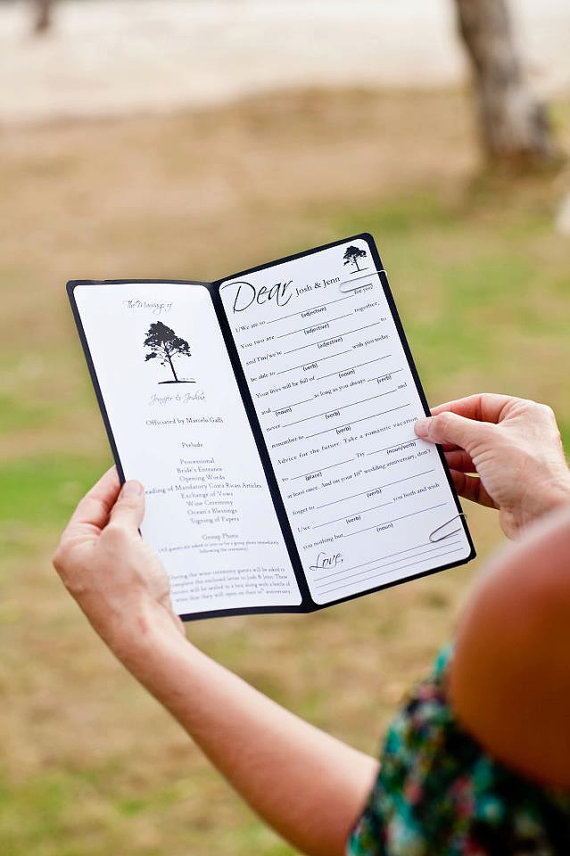 The Marriage of
Jennifer & Joshua
Officiated by Marcelo Galli
Prelude
Processional
Bride's Entrance
Opening Words
Reading of Mandatory Costa Rican Articles
Exchange of Vows
Wine Ceremony
Ocean's Blessings
Signing of Papers
Group Photo
(All guests are asked to join us for a group photo immediately
following the ceremony.)
During the wine ceremony guests will be asked to
complete the enclosed letter to Josh & Jenn. These
will be sealed in a box along with a bottle of
wine that they will open on their 10th anniversary.
Dear Josh & Jenn
I/We are so for you
(adjective)
You two are together,
(adjective)
and I'm/we're to
(adjective)
be able to with you today.
(verb)
Your lives will be full of
(noun)
and as long as you always
(noun) (verb)
never and
(verb)
remember to
(verb)
Advice for the future: Take a romantic vacation
to Try
(place) (verb)
at least once. And on your 10th wedding anniversary, don't
forget to
(verb)
I/we you both and wish
(verb)
you nothing but
(noun)
Love,